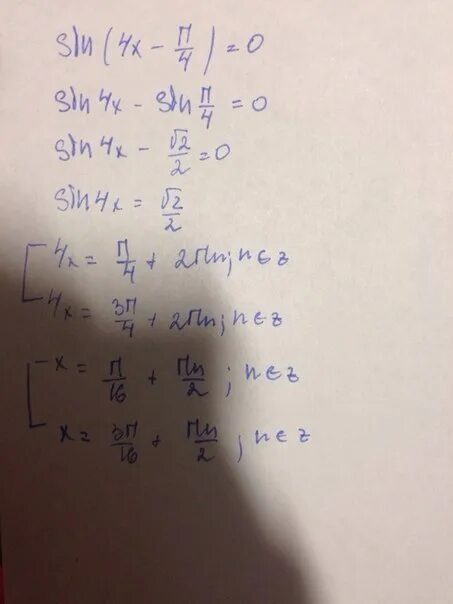 sin(4x - π/4) = 0
sin 4x - sin π/4 = 0
sin 4x - √2/2 = 0
sin 4x = √2/2
[4x = π/4 + 2πn; n ∈ z
4x = 3π/4 + 2πn; n ∈ z
[x = π/16 + πn/2; n ∈ z
x = 3π/16 + πn/2; n ∈ z